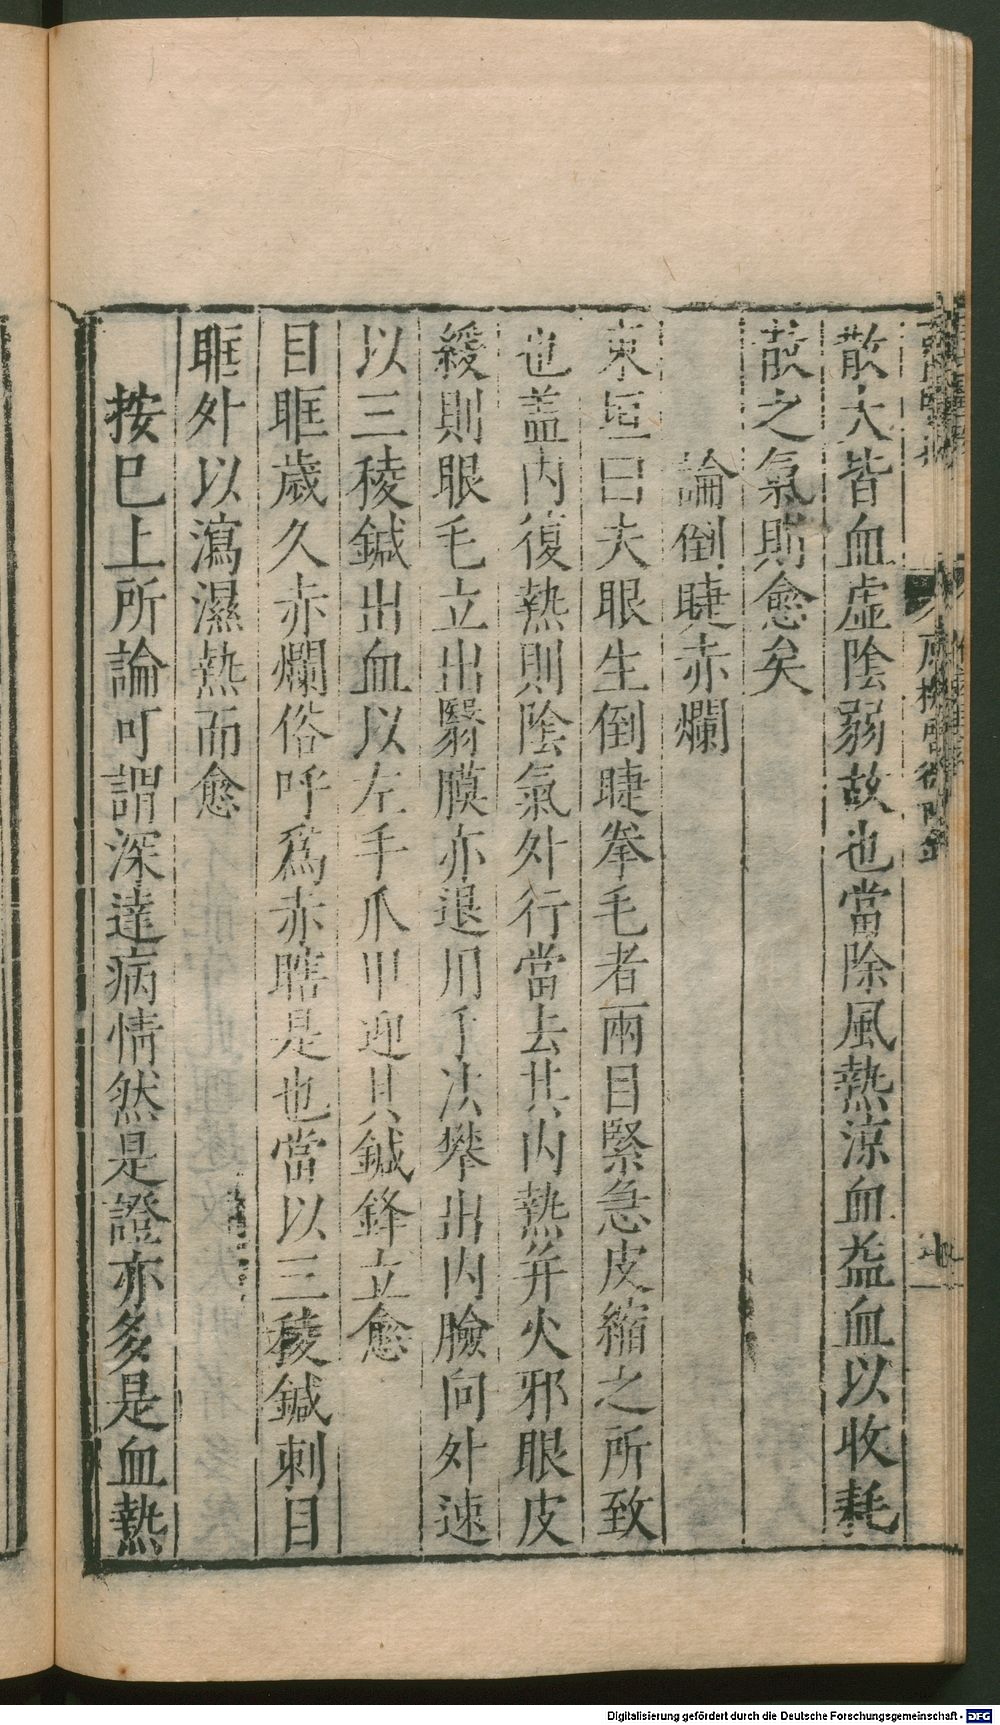 散大皆血虛陰弱故也當除風熱涼血益血以收耗
散之氣則愈矣
論倒睫赤爛
東垣曰夫眼生倒睫拳毛者兩目緊急皮縮之所致
也盖内復熱則陰氣外行當去其内熱并火邪眼皮
緩則眼毛立出翳膜亦退用手法攀出内臉向外速
以三稜鍼出血以左手爪甲迎其鍼鋒立愈
目眶歲久赤爛俗呼爲赤瞎是也當以三稜鍼刺目
眶外以瀉濕熱而愈
按已上所論可謂深達病情然是證亦多是血熱
Digitalisierung gefördert durch die Deutsche Forschungsgemeinschaft - DFG